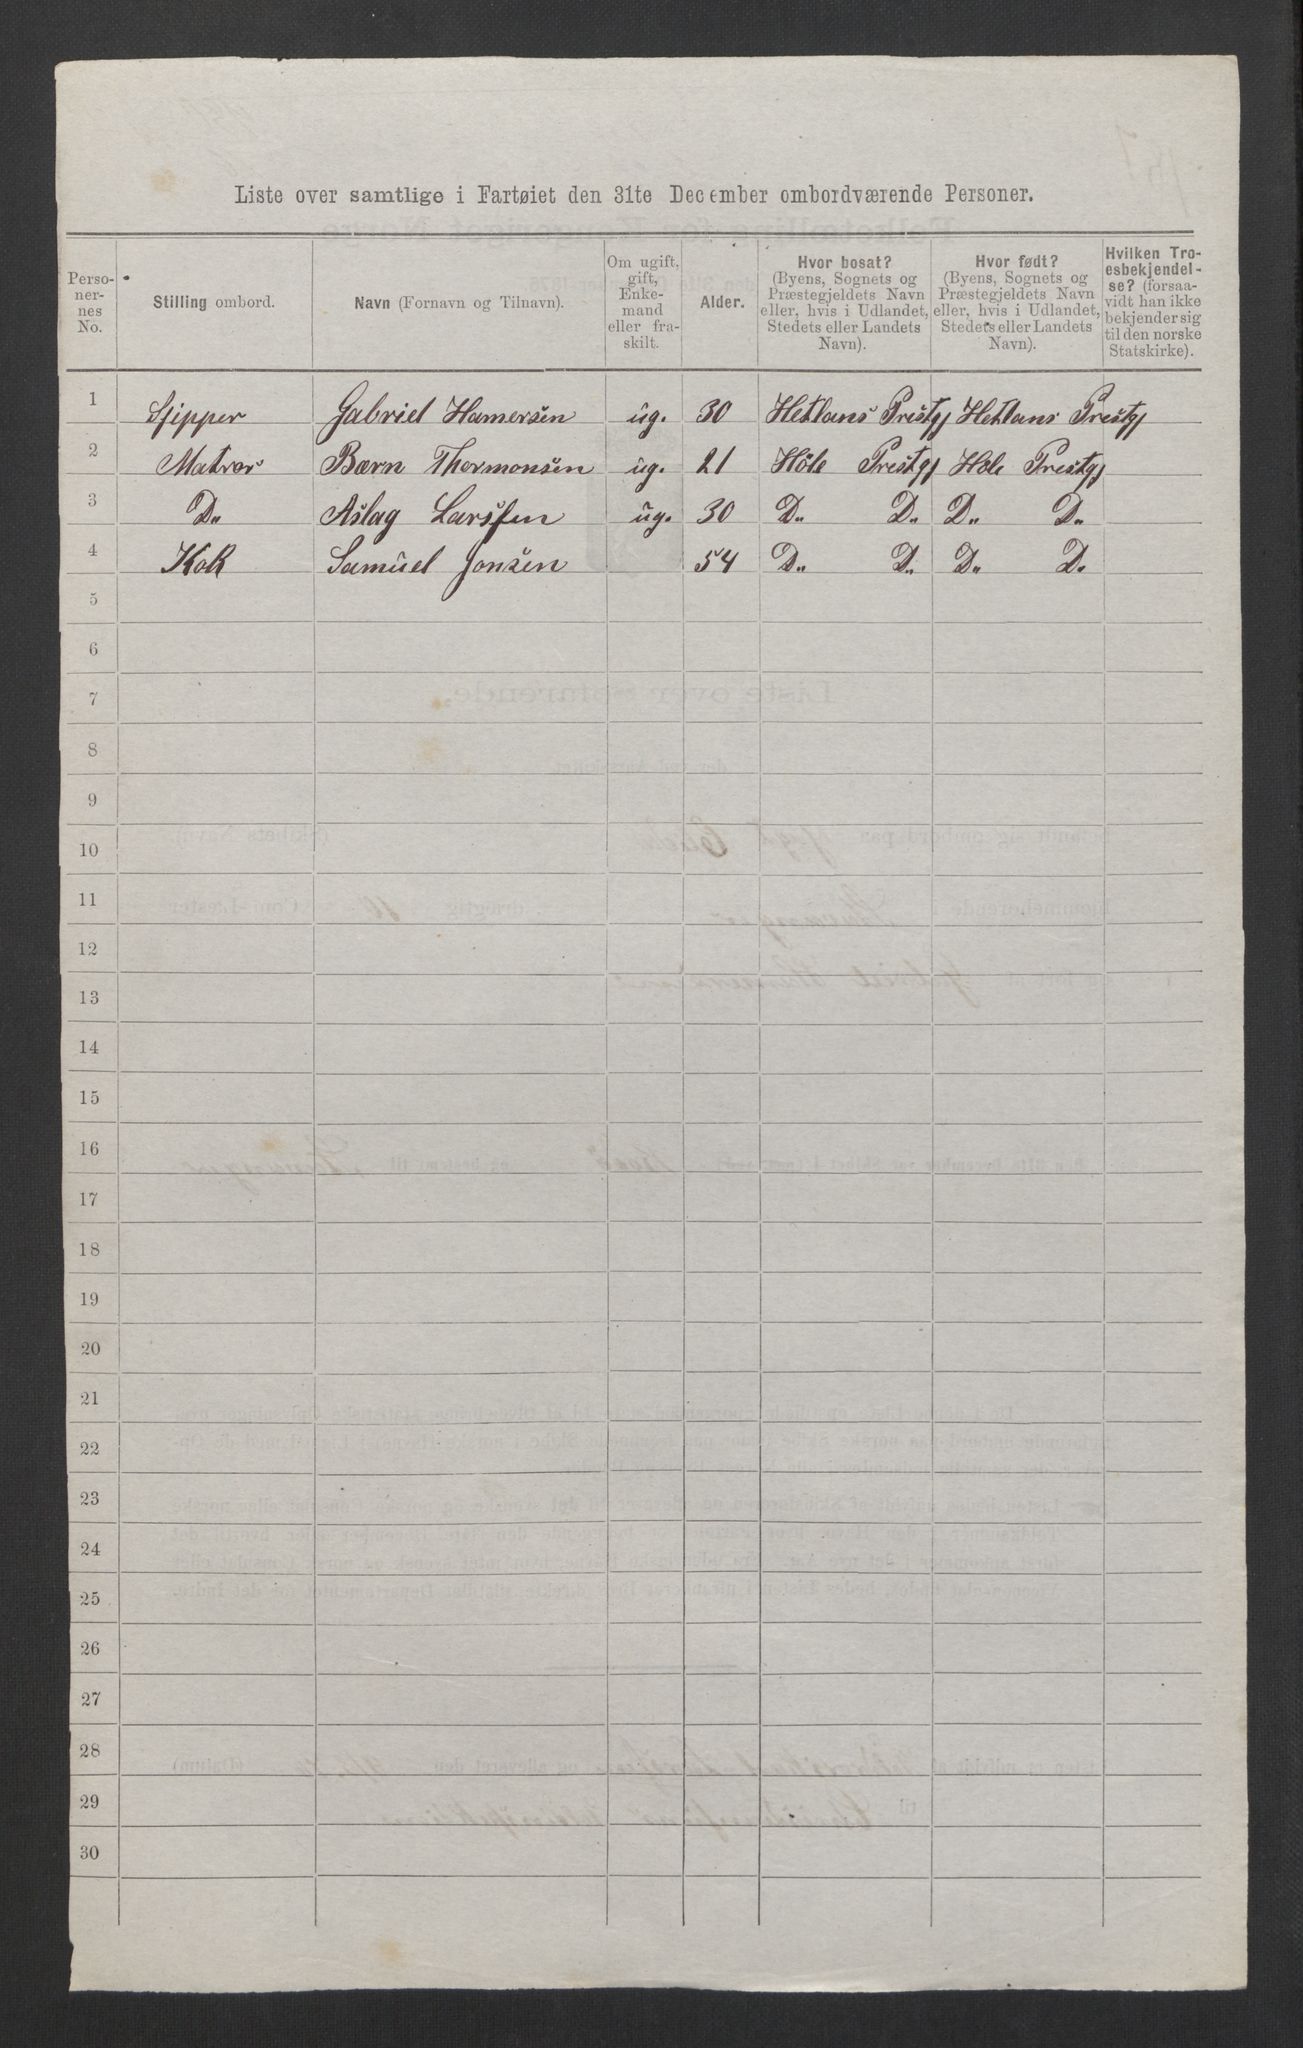 Liste over samtlige i Fartøiet den 31te December ombordværende Personer.
Perso-
ner-
nes
No.
Stilling ombord.
Navn (Fornavn og Tilnavn).
Om ugift,
gift,
Enke-
mand
eller fra-
skilt.
Alder.
Hvor bosat?
(Byens, Sognets og
Præstegjeldets Navn
eller, hvis i Udlandet,
Stedets eller Landets
Navn).
Hvor født?
(Byens, Sognets og
Præstegjeldets Navn
eller, hvis i Udlandet,
Stedets eller Landets
Navn).
Hvilken Tro-
esbekjendel-
se? (forsaa-
vidt han ikke
bekjender sig
til den norske
Statskirke).
1 Sjipper Gabriel Hamersen ug. 30 Hetlans Prestgj Hetlans Prestgj
2 Matros Bærn Thormonsen ug. 21 Höle Prestgj Hole Prestgj
3 D„ Aslag Larssen ug. 30 D„ D„ D„ D„
4 Kok Samuel Jonsen 54 D„ D„ D„ D„
5
6
7
8
9
10
11
12
13
14
15
16
17
18
19
20
21
22
23
24
25
26
27
28
29
30